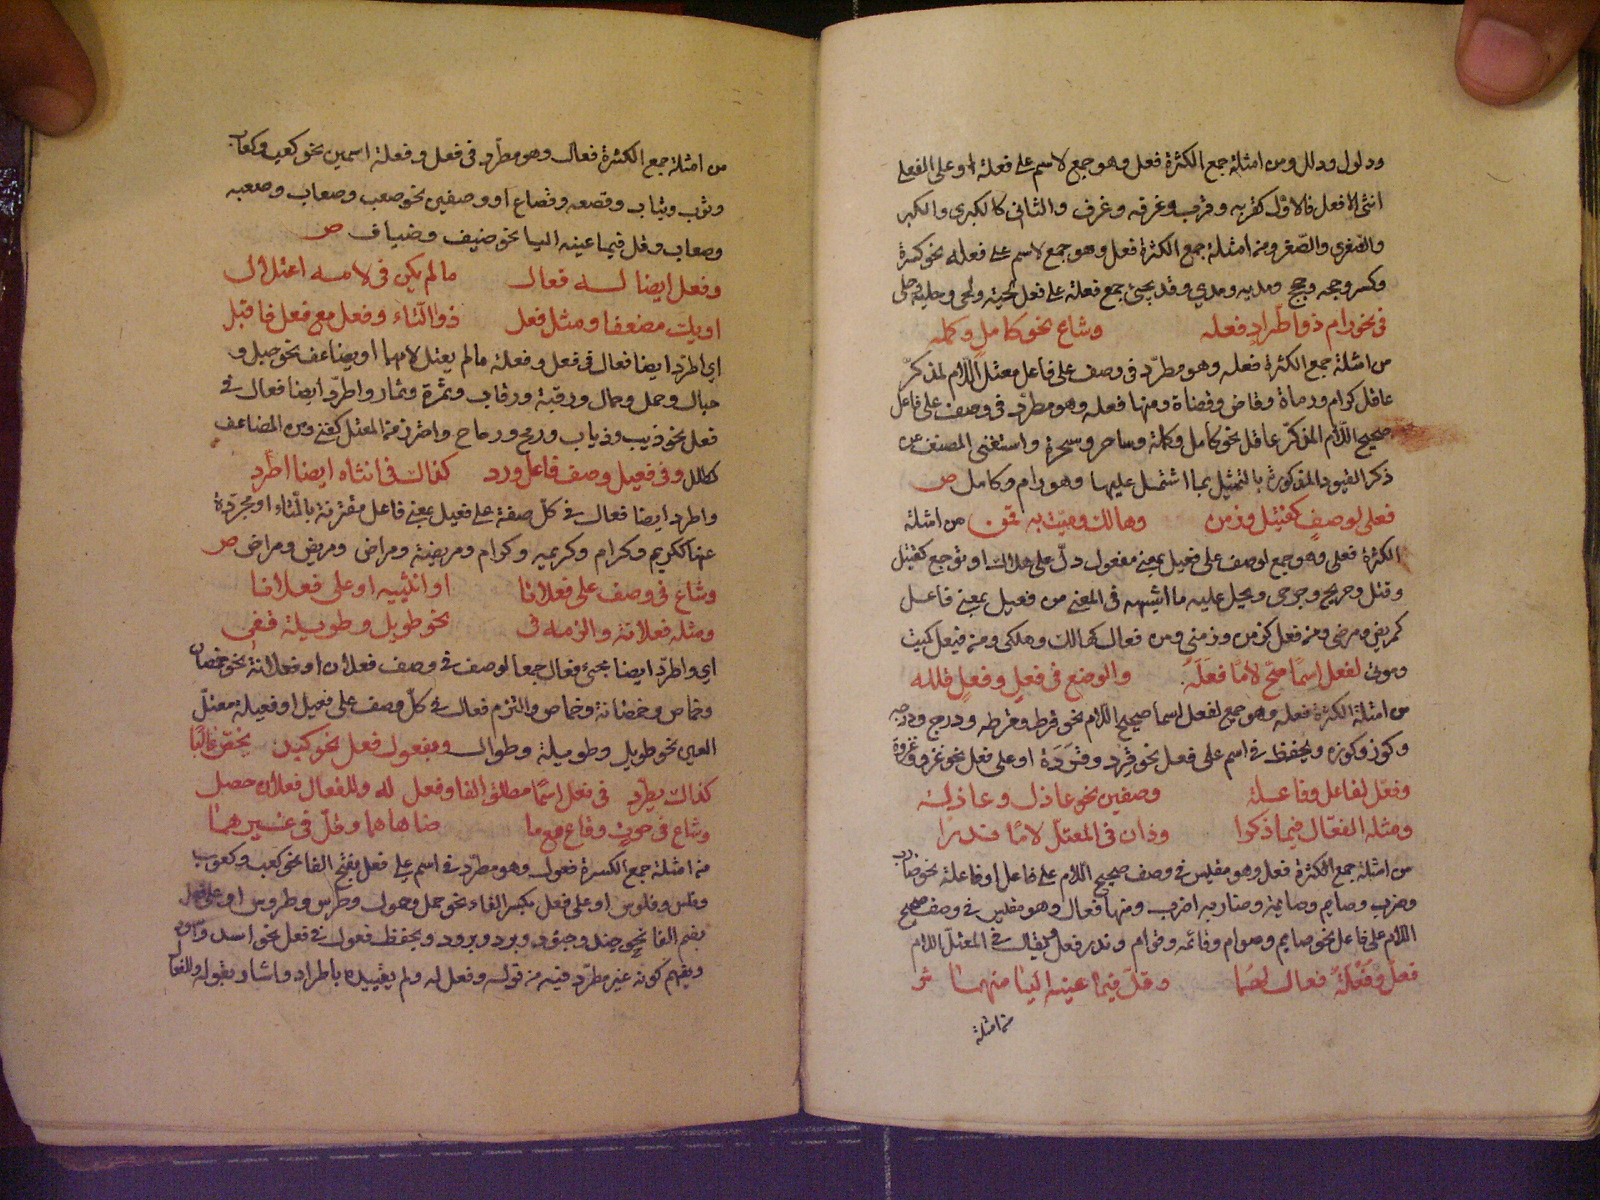 ودلول ودلل ومن امثلة جمع الكثرة فعل وهو جمع لاسم على فعلة او على الفعلى
انثى الافعل فالاول كقربه وقرب وغرفه وغرف والثانى كالكبرى والكبر
والصغرى والصغر ومن امثلة جمع الكثرة فعل وهو جمع لاسم على فعله نحو كسرة
وكسر وحجه وحجج ومديه ومدي وقد يجئ جمع فعلة على فعل لحية ولحى وحلية وحلى
فى نحو رام ذو اطراد فعله وشاع نحو كامل وكمله
من امثلة جمع الكثرة فعله وهو مطرد فى وصف على فاعل معتل اللام لمذكر
عاقل كرام ورماة وقاض وقضاة ومنها فعله وهو مطرد فى وصف على فاعل
صحيح اللام المذكر عاقل نحو كامل وكملة وساحر وسحرة واستغنى المصنف عن
ذكر القيود المذكورة بالتمثيل بما اشتمل عليها وهو رام وكامل ص
فعلى لوصف كقتيل وزمن وهالك وميت به قمن من امثلة
الكثرة فعلى وهو جمع لوصف على فعيل بمعنى مفعول دل على هلاك او توجع كقتيل
وقتلى وجريح وجرحى ويحمل عليه ما اشبهه فى المعنى من فعيل بمعنى فاعل
كمريض ومرضى ومن فعل كزمن وزمنى ومن فعال كهالك وهلكى ومن فيعل كميت
وموتى لفعل اسما صح لاما فعله والوضع فى فعل وفعل قلله
من امثلة الكثرة فعله وهو جمع لفعل اسما صحيح اللام نحو قرط وقرطه ودرج ودرجه
وكوز وكوزه ويحفظ فى اسم على فعل نحو قرد وقردة او على فعل نحو غرد وغردة
وفعل لفاعل وفاعله وصفين نحو عاذل وعاذله
ومثله الفعال فيما ذكرا وذان فى المعتل لاما ندرا
من امثلة جمع الكثرة فعل وهو مقيس فى وصف صحيح اللام على فاعل او فاعلة نحو ضارب
وضرب وصايم وصايمة وضاربه اضرب ومنها فعال وهو مقيس فى وصف صحيح
اللام على فاعل نحو صايم وصوام وقائمه وقوام وندر فعل وفعال فى المعتل اللام
فعل وفعلة فعال لهما وقل فيما عينه اليا منهما ش
من امثلة
من امثلة جمع الكثرة فعال وهو مطرد فى فعل وفعلة اسمين نحو كعب وكعاب
وثوب وثياب وقصعه وقصاع او وصفين نحو صعب وصعاب وصعبه
وصعاب وقل فيما عينه اليا نحو ضيف وضياف ص
وفعل ايضا له فعال ما لم يكن فى لامه اعتلال
او يك مضعفا ومثل فعل ذو التاء وفعل مع فعل فاقبل
اي اطرد ايضا فعال فى فعل وفعلة ما لم يعتل لامهما او يضاعف نحو جبل و
جبال وجمل وجمال ورقبة ورقاب وثمرة وثمار واطرد ايضا فعال فى
فعل نحو ذيب وذياب ورمح ورماح واحترز من المعتل كفتى ومن المضاعف
كطلل وفى فعيل وصف فاعل ورد كذاك فى انثاه ايضا اطرد
واطرد ايضا فعال فى كل صفة على فعيل بمعنى فاعل مقترنة بالتاء او مجردة
عنها ككريم وكرام وكريمه وكرام ومريضة ومراض ومريض ومراض ص
وشاع فى وصف على فعلانا او انثييه او على فعلانا
ومثله فعلانة والزمه فى نحو طويل وطويلة تفى
اي واطرد ايضا مجئ فعال جمعا لوصف فى وصف فعلان او فعلانة نحو خمصان
وخماص وخمصانة وخماص والتزم فعال فى كل وصف على فعيل او فعيلة معتل
العين نحو طويل وطويلة وطوال وبفعول فعل نحو كبد يخص غالبا
كذاك يطرد فى فعل اسما مطلق الفا وفعل له وللفعال فعلان حصل
وشاع فى حوت وقاع مع ما ضاهاهما وقل فى غيرهما
من امثلة جمع الكسرة فعول وهو مطرد فى اسم على فعل بفتح الفا نحو كعب وكعوب
وفلس وفلوس او على فعل بكسر الفاء نحو حمل وحمول وطرس وطروس او على فعل
بضم الفا نحو جند وجنود وبرد وبرود ويحفظ فعول فى فعل نحو اسد واسود
ويفهم كونه غير مطرد فيه من قوله وفعل له ولم يقيده باطراد واشار بقوله وللفعال